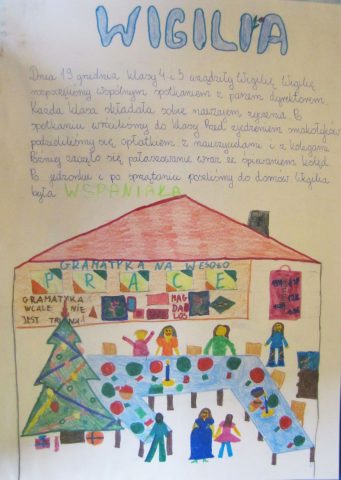 WIGILIA
Dnia 19 grudnia klasy 4 i 5 urządziły Wigilię. Wigilię
rozpoczęliśmy wspólnym spotkaniem z panem dyrektorem.
Każda klasa składała sobie nawzajem życzenia. Po
spotkaniu wróciliśmy do klasy. Przed zjedzeniem smakołyków
podzieliliśmy się opłatkiem z nauczycielami i z kolegami.
Później zaczęło się wraz ze śpiewaniem kolęd.
Po jedzeniu i po sprzątaniu poszliśmy do domów. Wigilia
była WSPANIAŁA
GRAMATYKA NA WESOŁO
PRACE
GRAMATYKA
WCALE NIE
JEST TRUDNA
MAG
DA
LOS